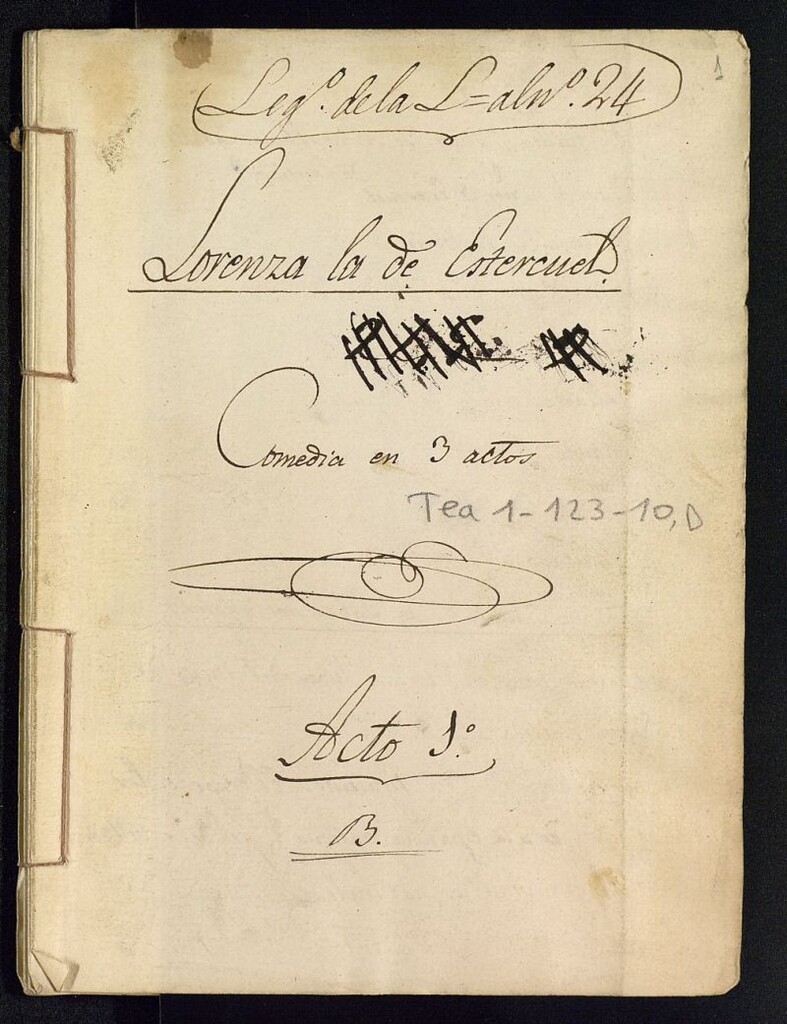 1
Legº. de la L=al nº. 24
Lorenza la de Estercuel.
Comedia en 3 actos
Tea 1-123-10, D
Acto 1º.
B.